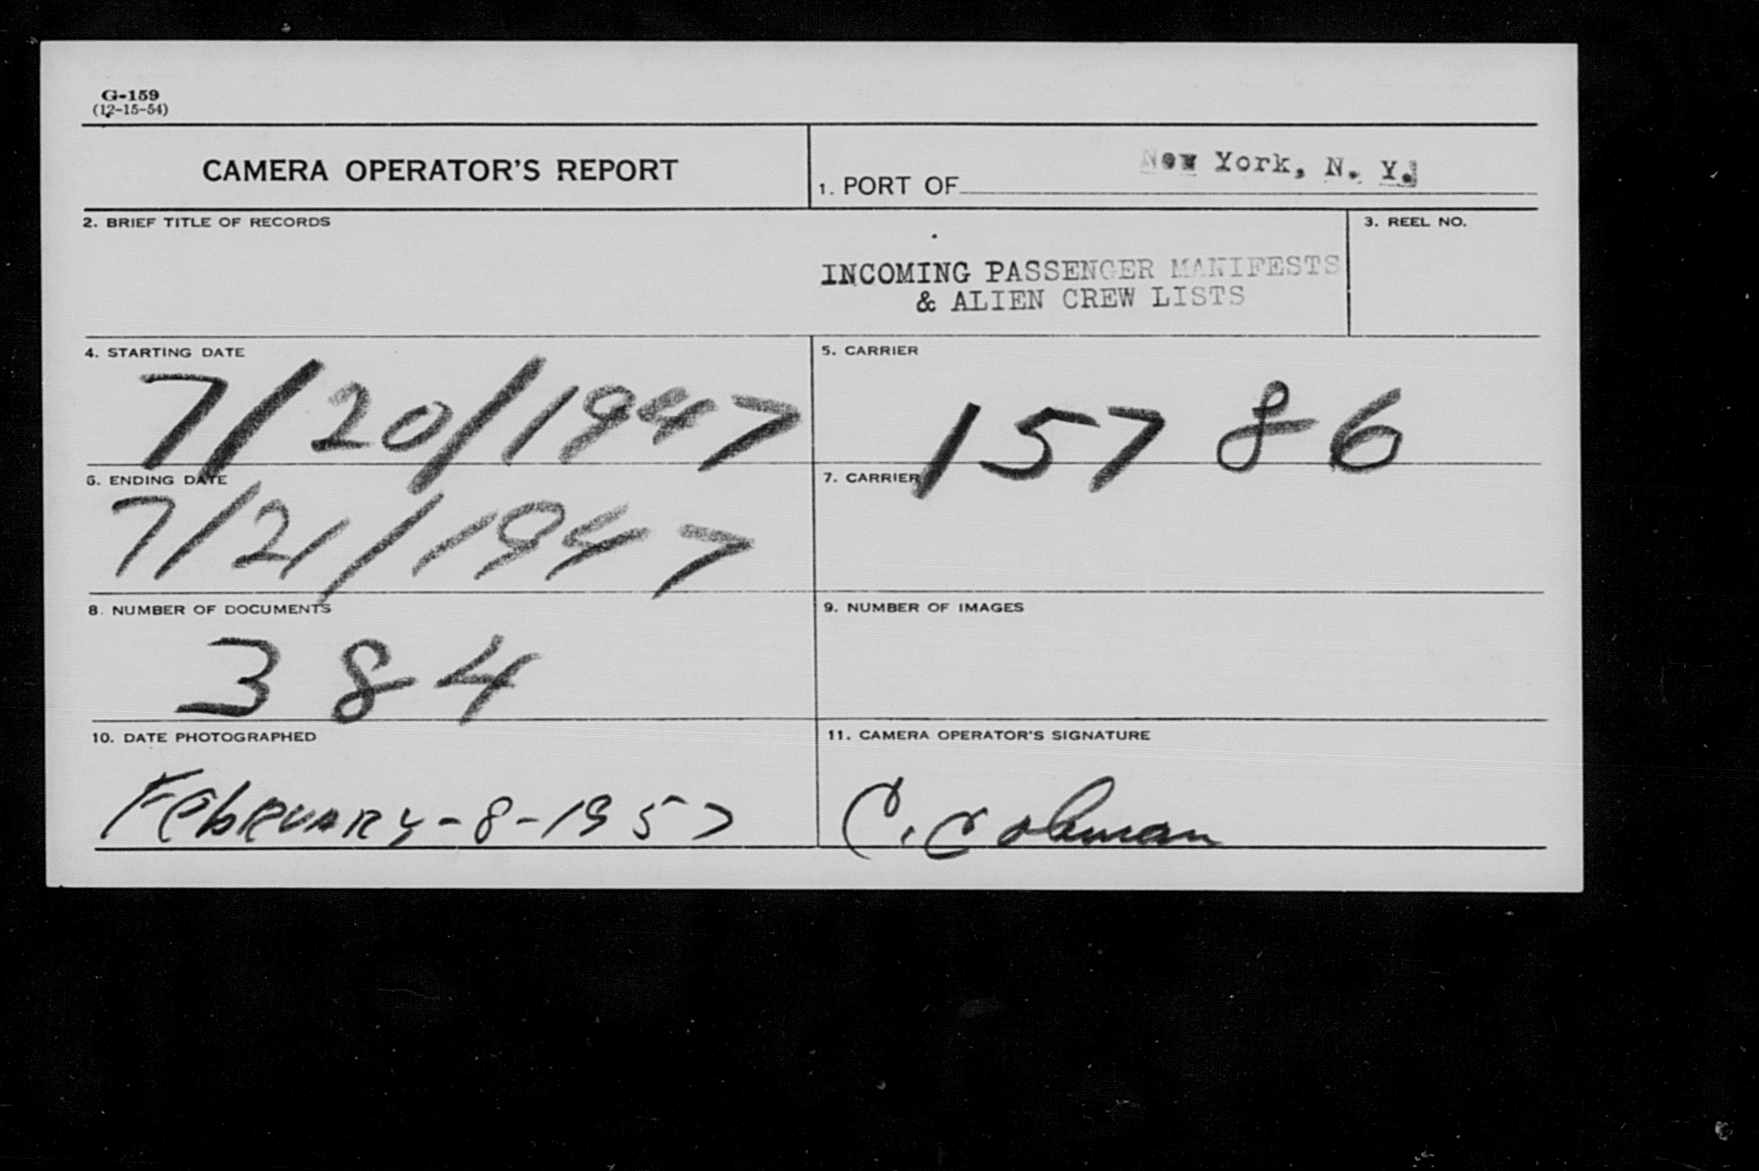 G-159
(12-15-54)
CAMERA OPERATOR'S REPORT
1. PORT OF New York, N. Y.
2. BRIEF TITLE OF RECORDS
INCOMING PASSENGER MANIFESTS
& ALIEN CREW LISTS
3. REEL NO.
4. STARTING DATE
7/20/1947
5. CARRIER
15786
6. ENDING DATE
7/21/1947
7. CARRIER
8. NUMBER OF DOCUMENTS
384
9. NUMBER OF IMAGES
10. DATE PHOTOGRAPHED
FebRUARy-8-1957
11. CAMERA OPERATOR'S SIGNATURE
C. Coleman